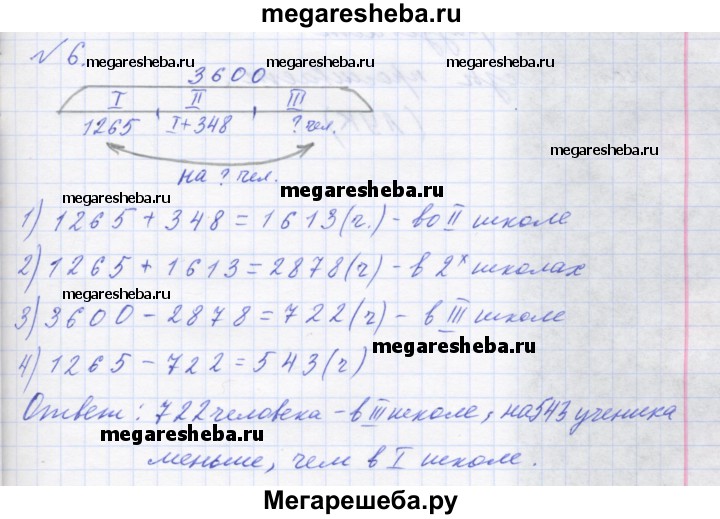 megaresheba.ru
№ 6.
megaresheba.ru megaresheba.ru megaresheba.ru
3600
I II III
1265 I+348 ? чел.
на ? чел.
megaresheba.ru
megaresheba.ru
1) 1265 + 348 = 1613 (ч.) - во II школе
2) 1265 + 1613 = 2878 (ч) - в 2х школах
megaresheba.ru
3) 3600 - 2878 = 722 (ч) - в III школе
megaresheba.ru
4) 1265 - 722 = 543 (ч)
Ответ: 722 человека - в III школе, на 543 ученика
megaresheba.ru
меньше, чем в I школе.
Мегарешеба.ру